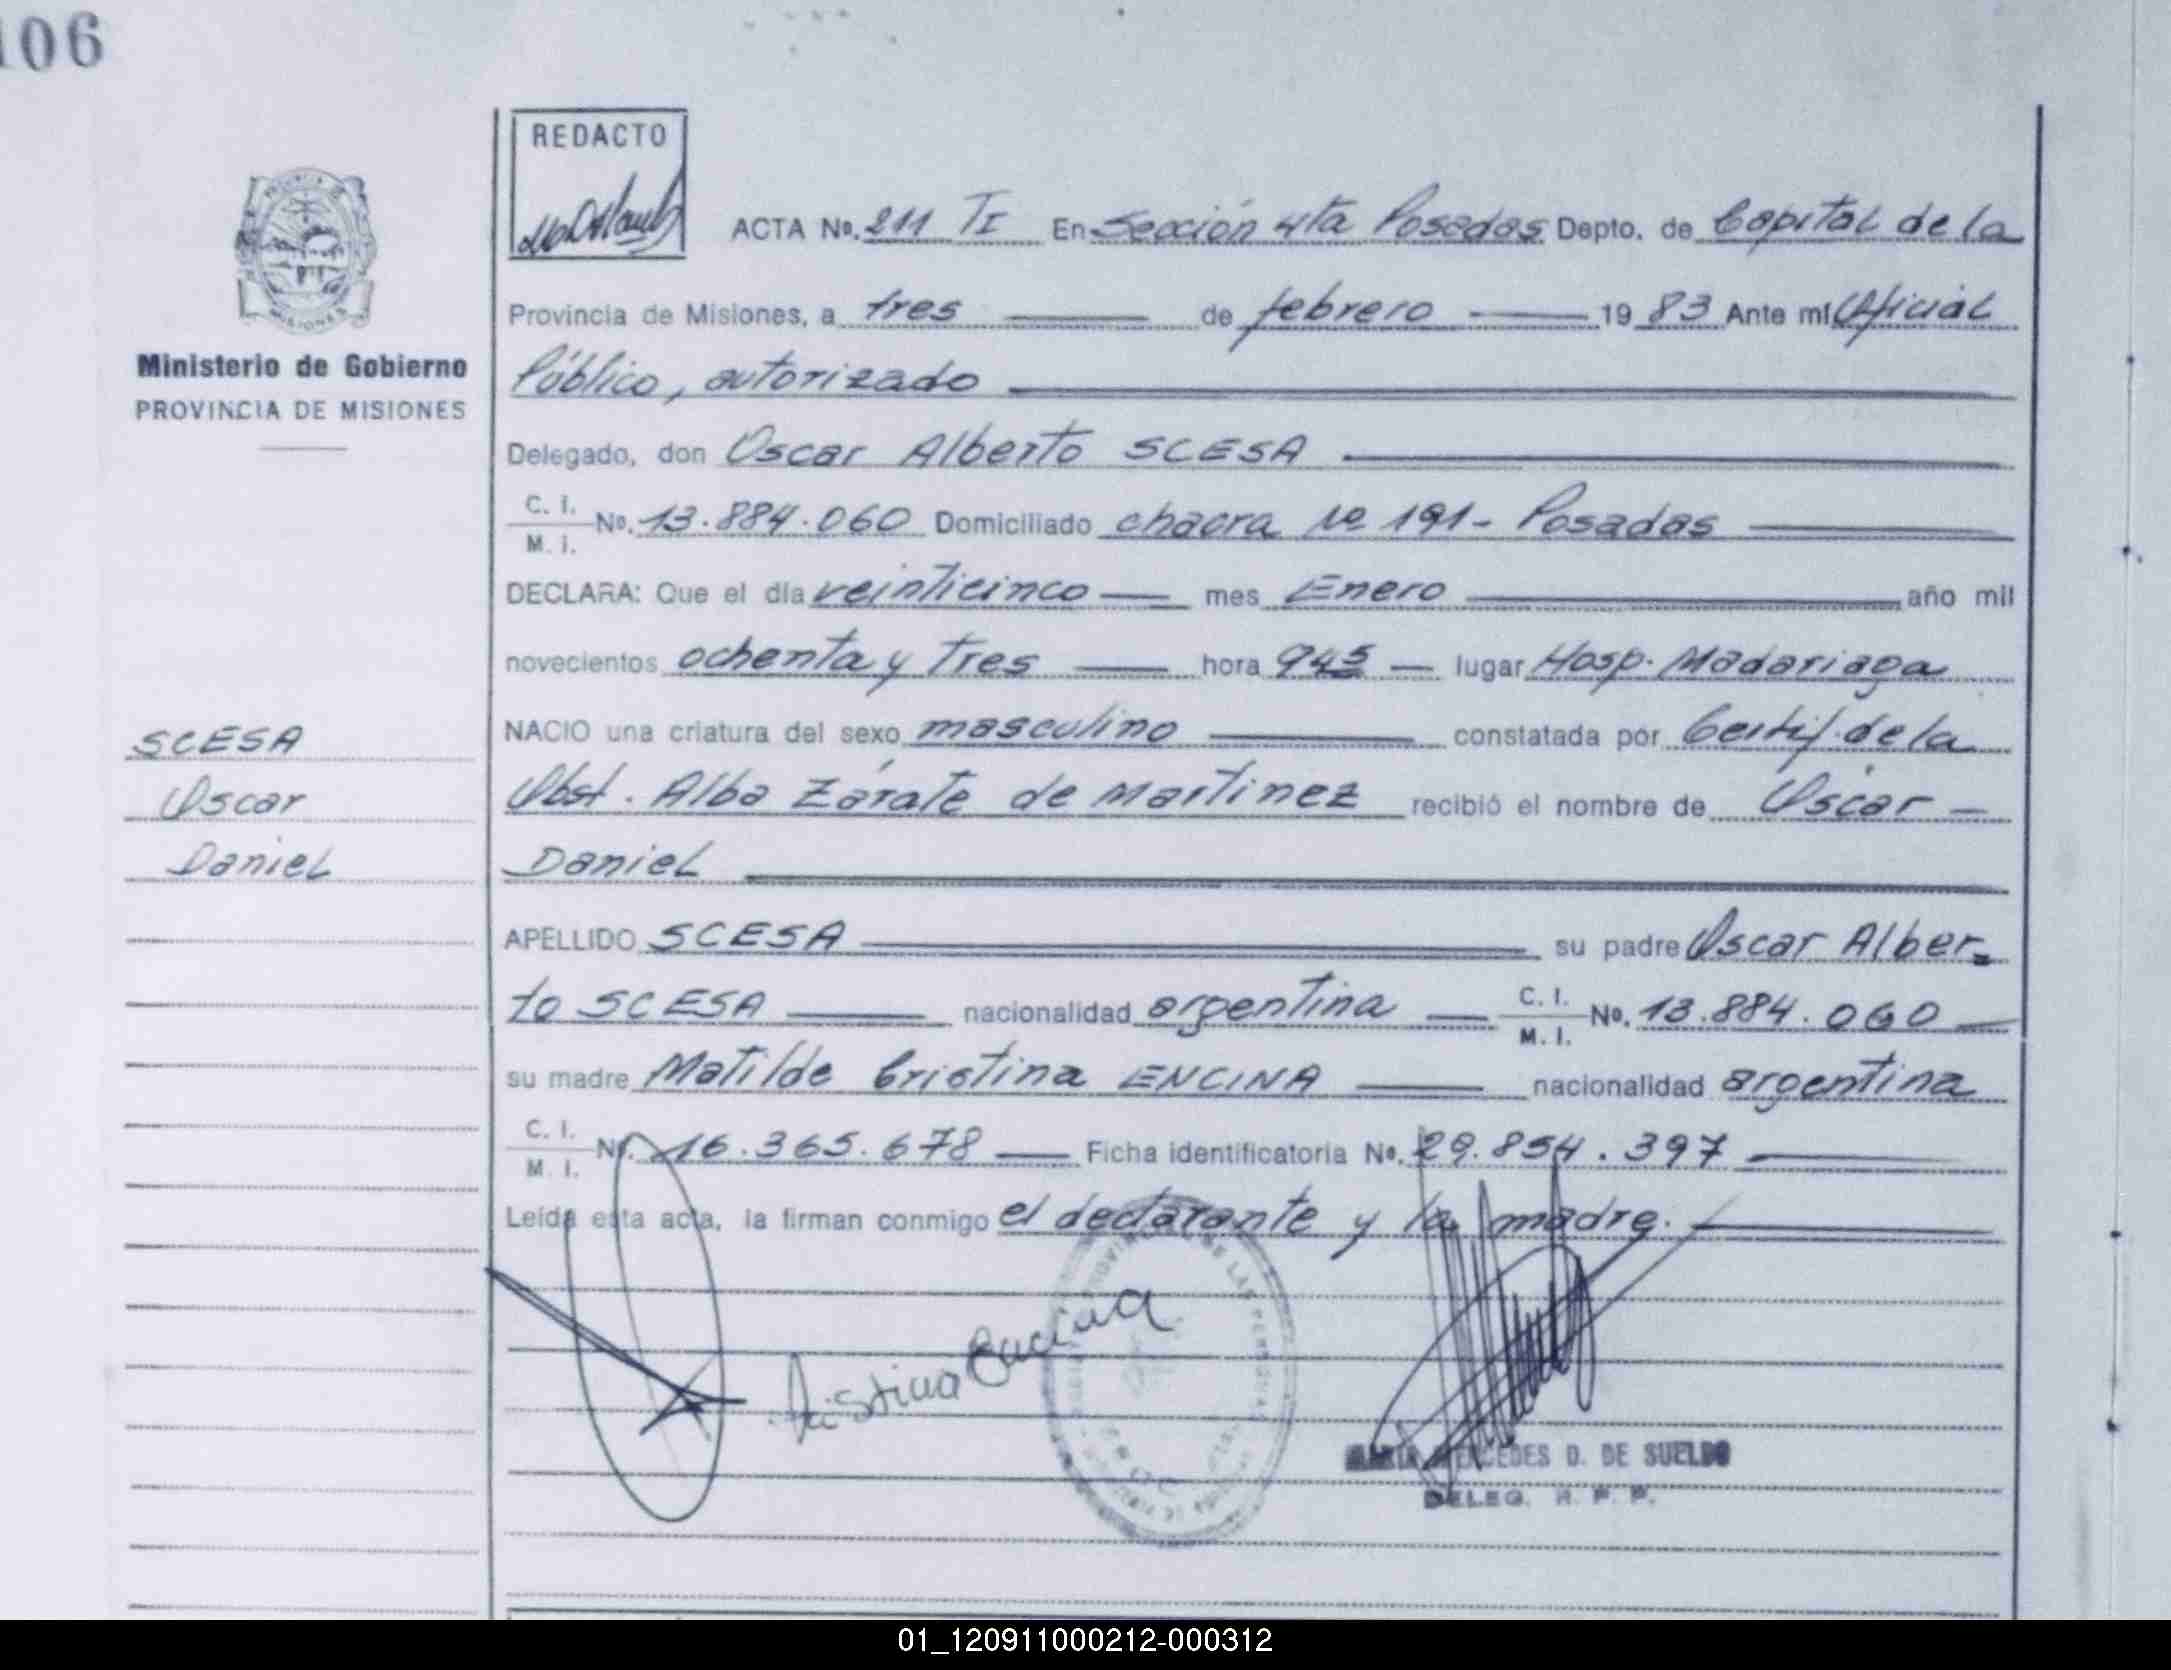 106
REDACTO
ACTA No. 211 TI En Sección 4ta Posadas Depto. de Capital de la
Provincia de Misiones, a tres de febrero 1983 Ante mí Oficial
Público, autorizado
Ministerio de Gobierno
PROVINCIA DE MISIONES
Delegado, don Oscar Alberto SCESA
C. I.
M. I. No. 13.884.060 Domiciliado chacra No 191- Posadas
DECLARA: Que el día veinticinco mes Enero año mil
novecientos ochenta y tres hora 945 lugar Hosp. Madariaga
SCESA
Oscar
Daniel
NACIO una criatura del sexo masculino constatada por Certif. de la
Obst. Alba Zárate de Martinez recibió el nombre de Oscar
Daniel
APELLIDO SCESA su padre Oscar Alber=
to SCESA nacionalidad argentina C. I.
M. I. No. 13.884.060
su madre Matilde Cristina ENCINA nacionalidad argentina
C. I.
M. I. No. 16.365.678 Ficha identificatoria No. 29.854.397
Leída esta acta, la firman conmigo el declarante y la madre.
Cristina Encina
MARIA MERCEDES D. DE SUELDO
DELEG. R. P. P.
01_120911000212-000312